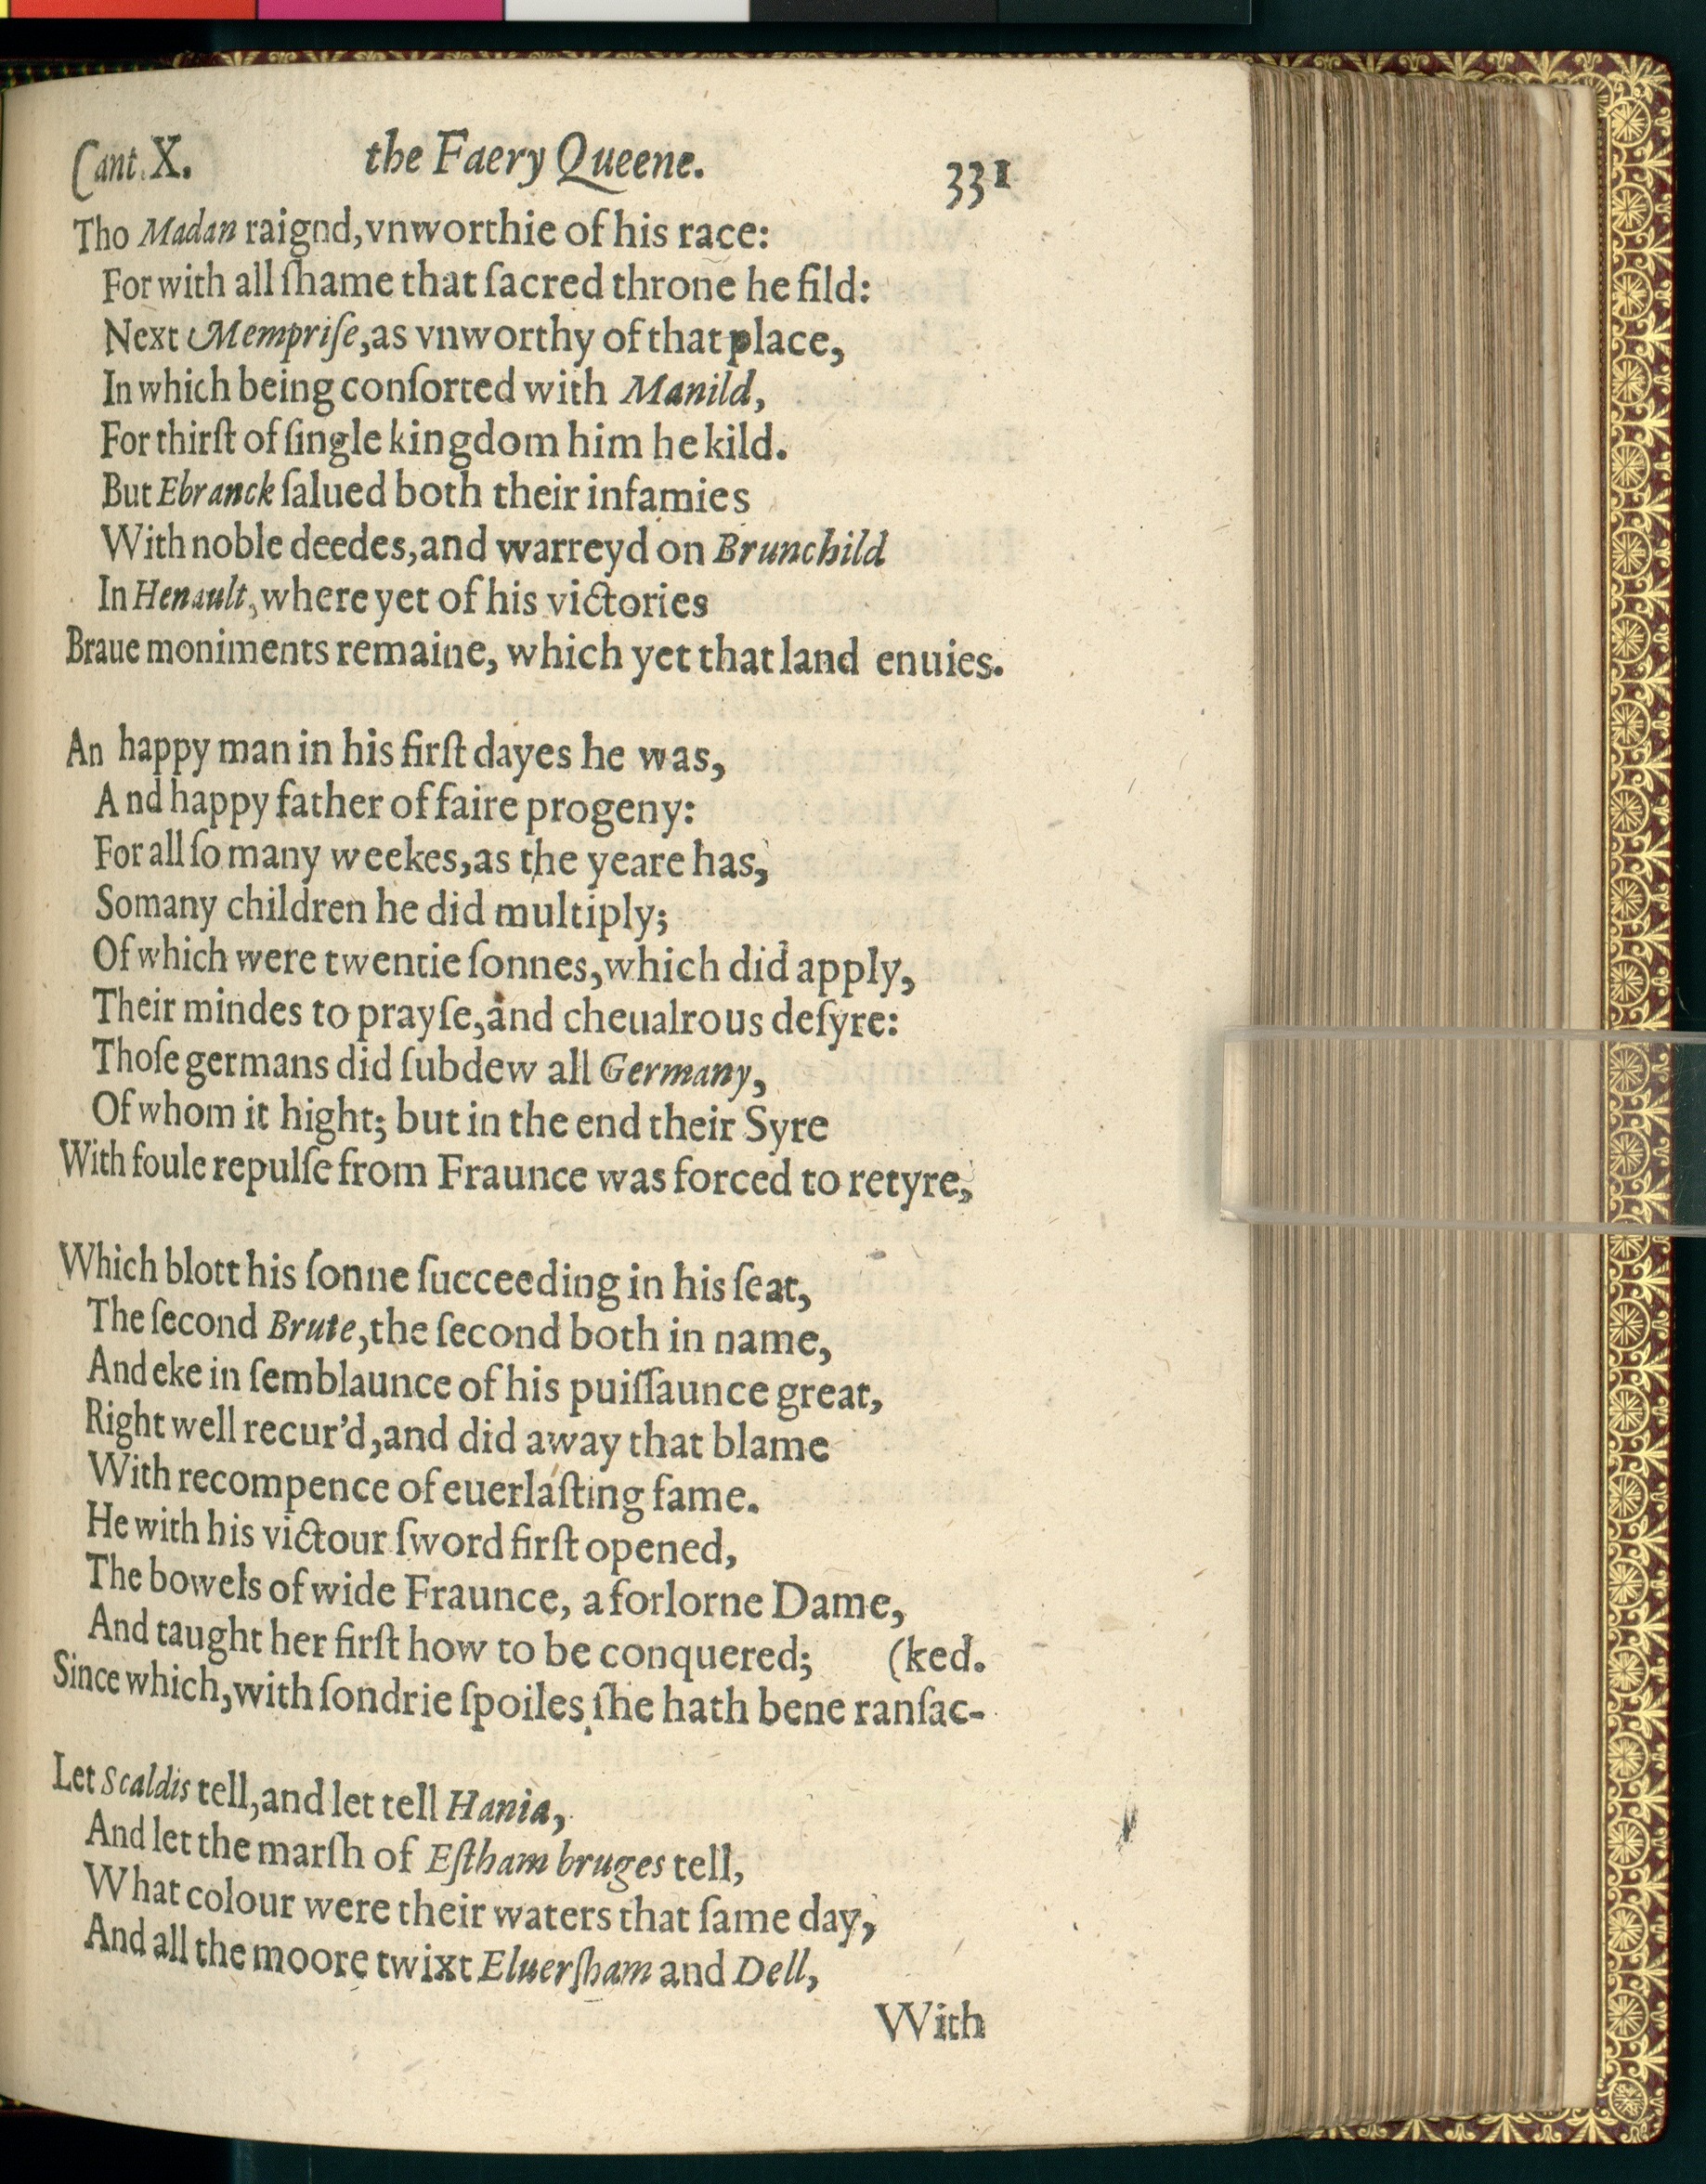 Cant. X. the Faery Queene. 331
Tho Madan raignd, vnworthie of his race:
For with all ſhame that ſacred throne he fild:
Next Mempriſe, as vnworthy of that place,
In which being conſorted with Manild,
For thirſt of ſingle kingdom him he kild.
But Ebranck ſalued both their infamies
With noble deedes, and warreyd on Brunchild
In Henault, where yet of his victories
Braue moniments remaine, which yet that land enuies.
An happy man in his firſt dayes he was,
And happy father of faire progeny:
For all ſo many weekes, as the yeare has,
So many children he did multiply;
Of which were twentie ſonnes, which did apply,
Their mindes to prayſe, and cheualrous deſyre:
Thoſe germans did ſubdew all Germany,
Of whom it hight; but in the end their Syre
With foule repulſe from Fraunce was forced to retyre,
Which blott his ſonne ſucceeding in his ſeat,
The ſecond Brute, the ſecond both in name,
And eke in ſemblaunce of his puiſſaunce great,
Right well recur'd, and did away that blame
With recompence of euerlaſting fame.
He with his victour ſword firſt opened,
The bowels of wide Fraunce, a forlorne Dame,
And taught her firſt how to be conquered; (ked.
Since which, with ſondrie ſpoiles ſhe hath bene ranſac-
Let Scaldis tell, and let tell Hania,
And let the marſh of Eſtham bruges tell,
What colour were their waters that ſame day,
And all the moore twixt Eluerſham and Dell,
With